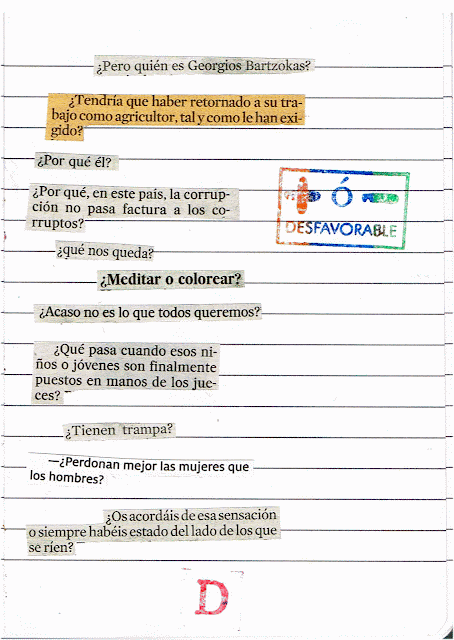 ¿Pero quién es Georgios Bartzokas?
¿Tendría que haber retornado a su tra-
bajo como agricultor, tal y como le han exi-
gido?
¿Por qué él?
¿Por qué, en este país, la corrup-
ción no pasa factura a los co-
rruptos?
Ó
DESFAVORABLE
¿qué nos queda?
¿Meditar o colorear?
¿Acaso no es lo que todos queremos?
¿Qué pasa cuando esos ni-
ños o jóvenes son finalmente
puestos en manos de los jue-
ces?
¿Tienen trampa?
—¿Perdonan mejor las mujeres que
los hombres?
¿Os acordáis de esa sensación
o siempre habéis estado del lado de los que
se ríen?
D